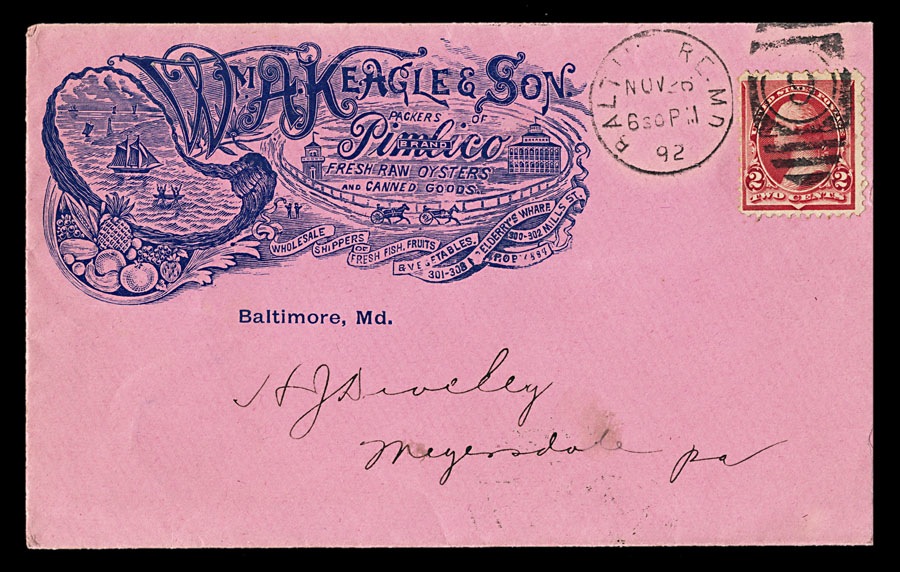 Wm A. Keagle & Son.
PACKERS OF
Pimlico
BRAND
FRESH RAW OYSTERS
AND CANNED GOODS.
WHOLESALE
SHIPPERS
OF
FRESH FISH, FRUITS
& VEGETABLES,
301-303
ELDERRY'S WHARF
300-302 MILLS ST.
Baltimore, Md.
BALTIMORE MD
NOV 26
630 PM
92
2 2
TWO CENTS
H J Diveley
Meyersdale Pa